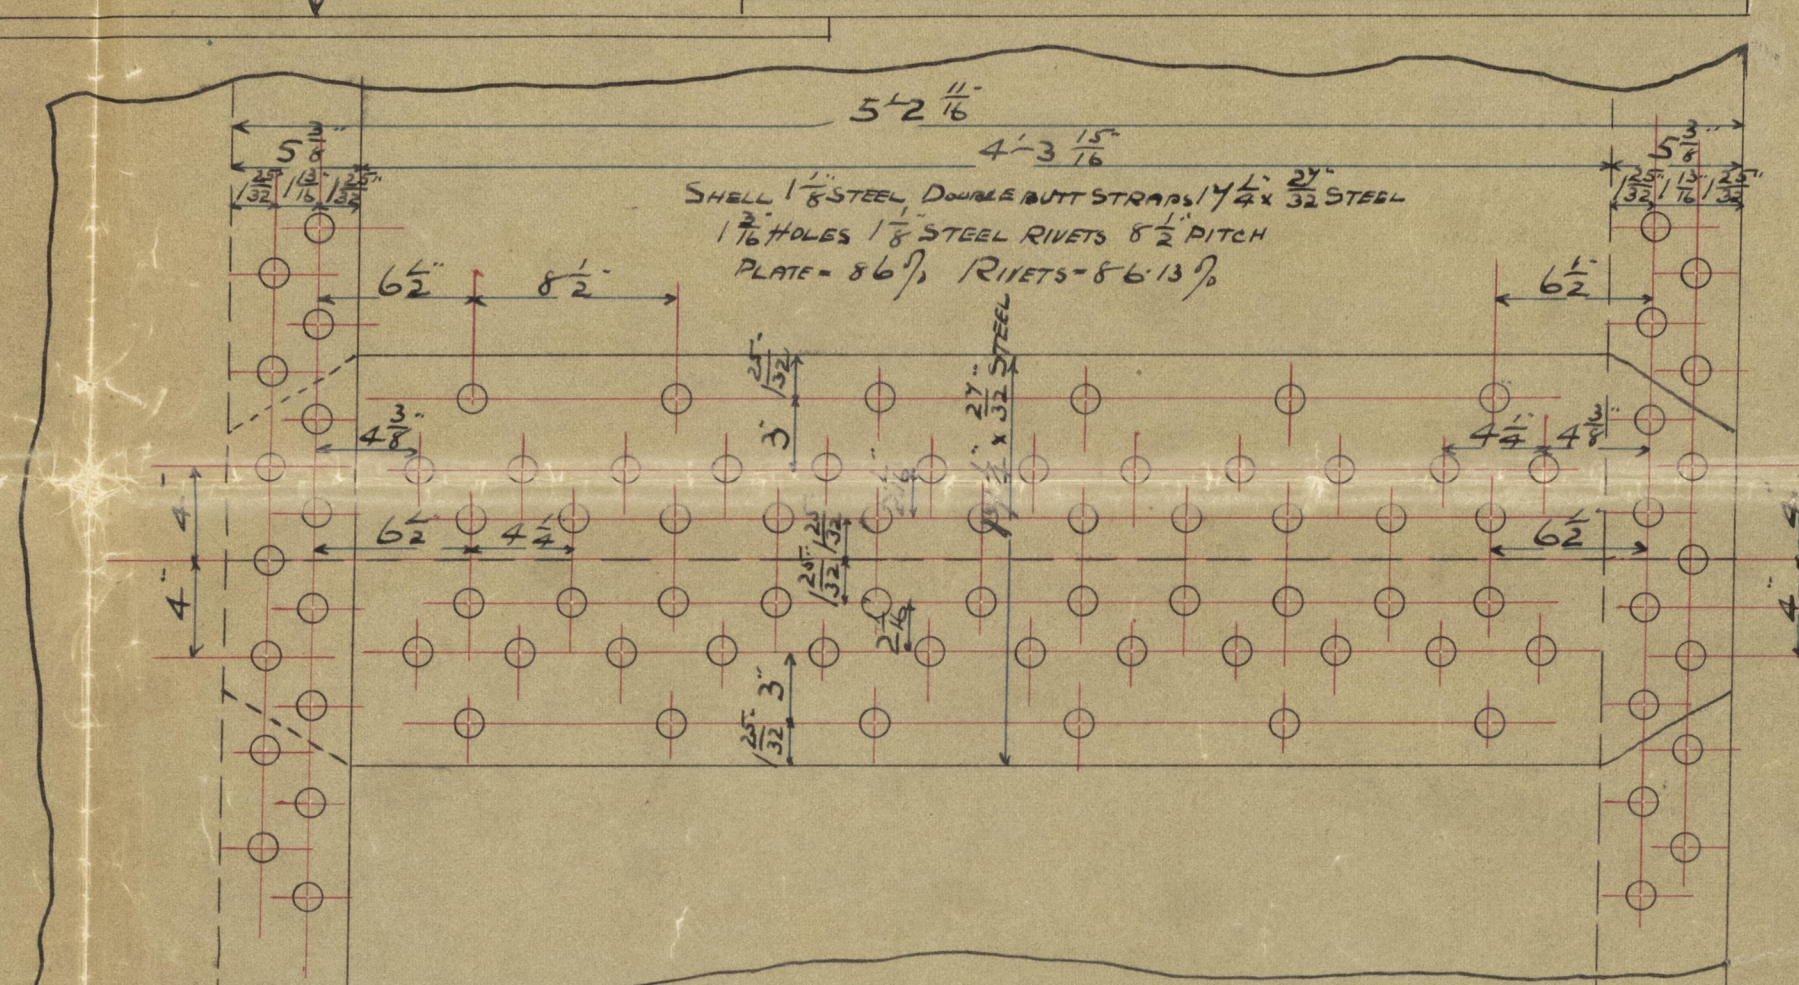 5'-2 11/16"
4'-3 15/16"
5 3/8"
5 3/8"
1 25/32" 1 13/16" 1 25/32"
1 25/32" 1 13/16" 1 25/32"
SHELL 1 1/8" STEEL DOUBLE BUTT STRAPS 17 1/4" x 27/32" STEEL
1 3/16" HOLES 1 1/8" STEEL RIVETS 8 1/2" PITCH
PLATE = 86% RIVETS = 86·13%
6 1/2"
8 1/2"
6 1/2"
1 25/32"
3"
x 27/32" STEEL
4 3/8"
4 1/4"
4 3/8"
4"
4"
6 1/2"
4 1/4"
1 25/32"
1 25/32"
6 1/2"
2 1/16"
3"
1 25/32"
4"